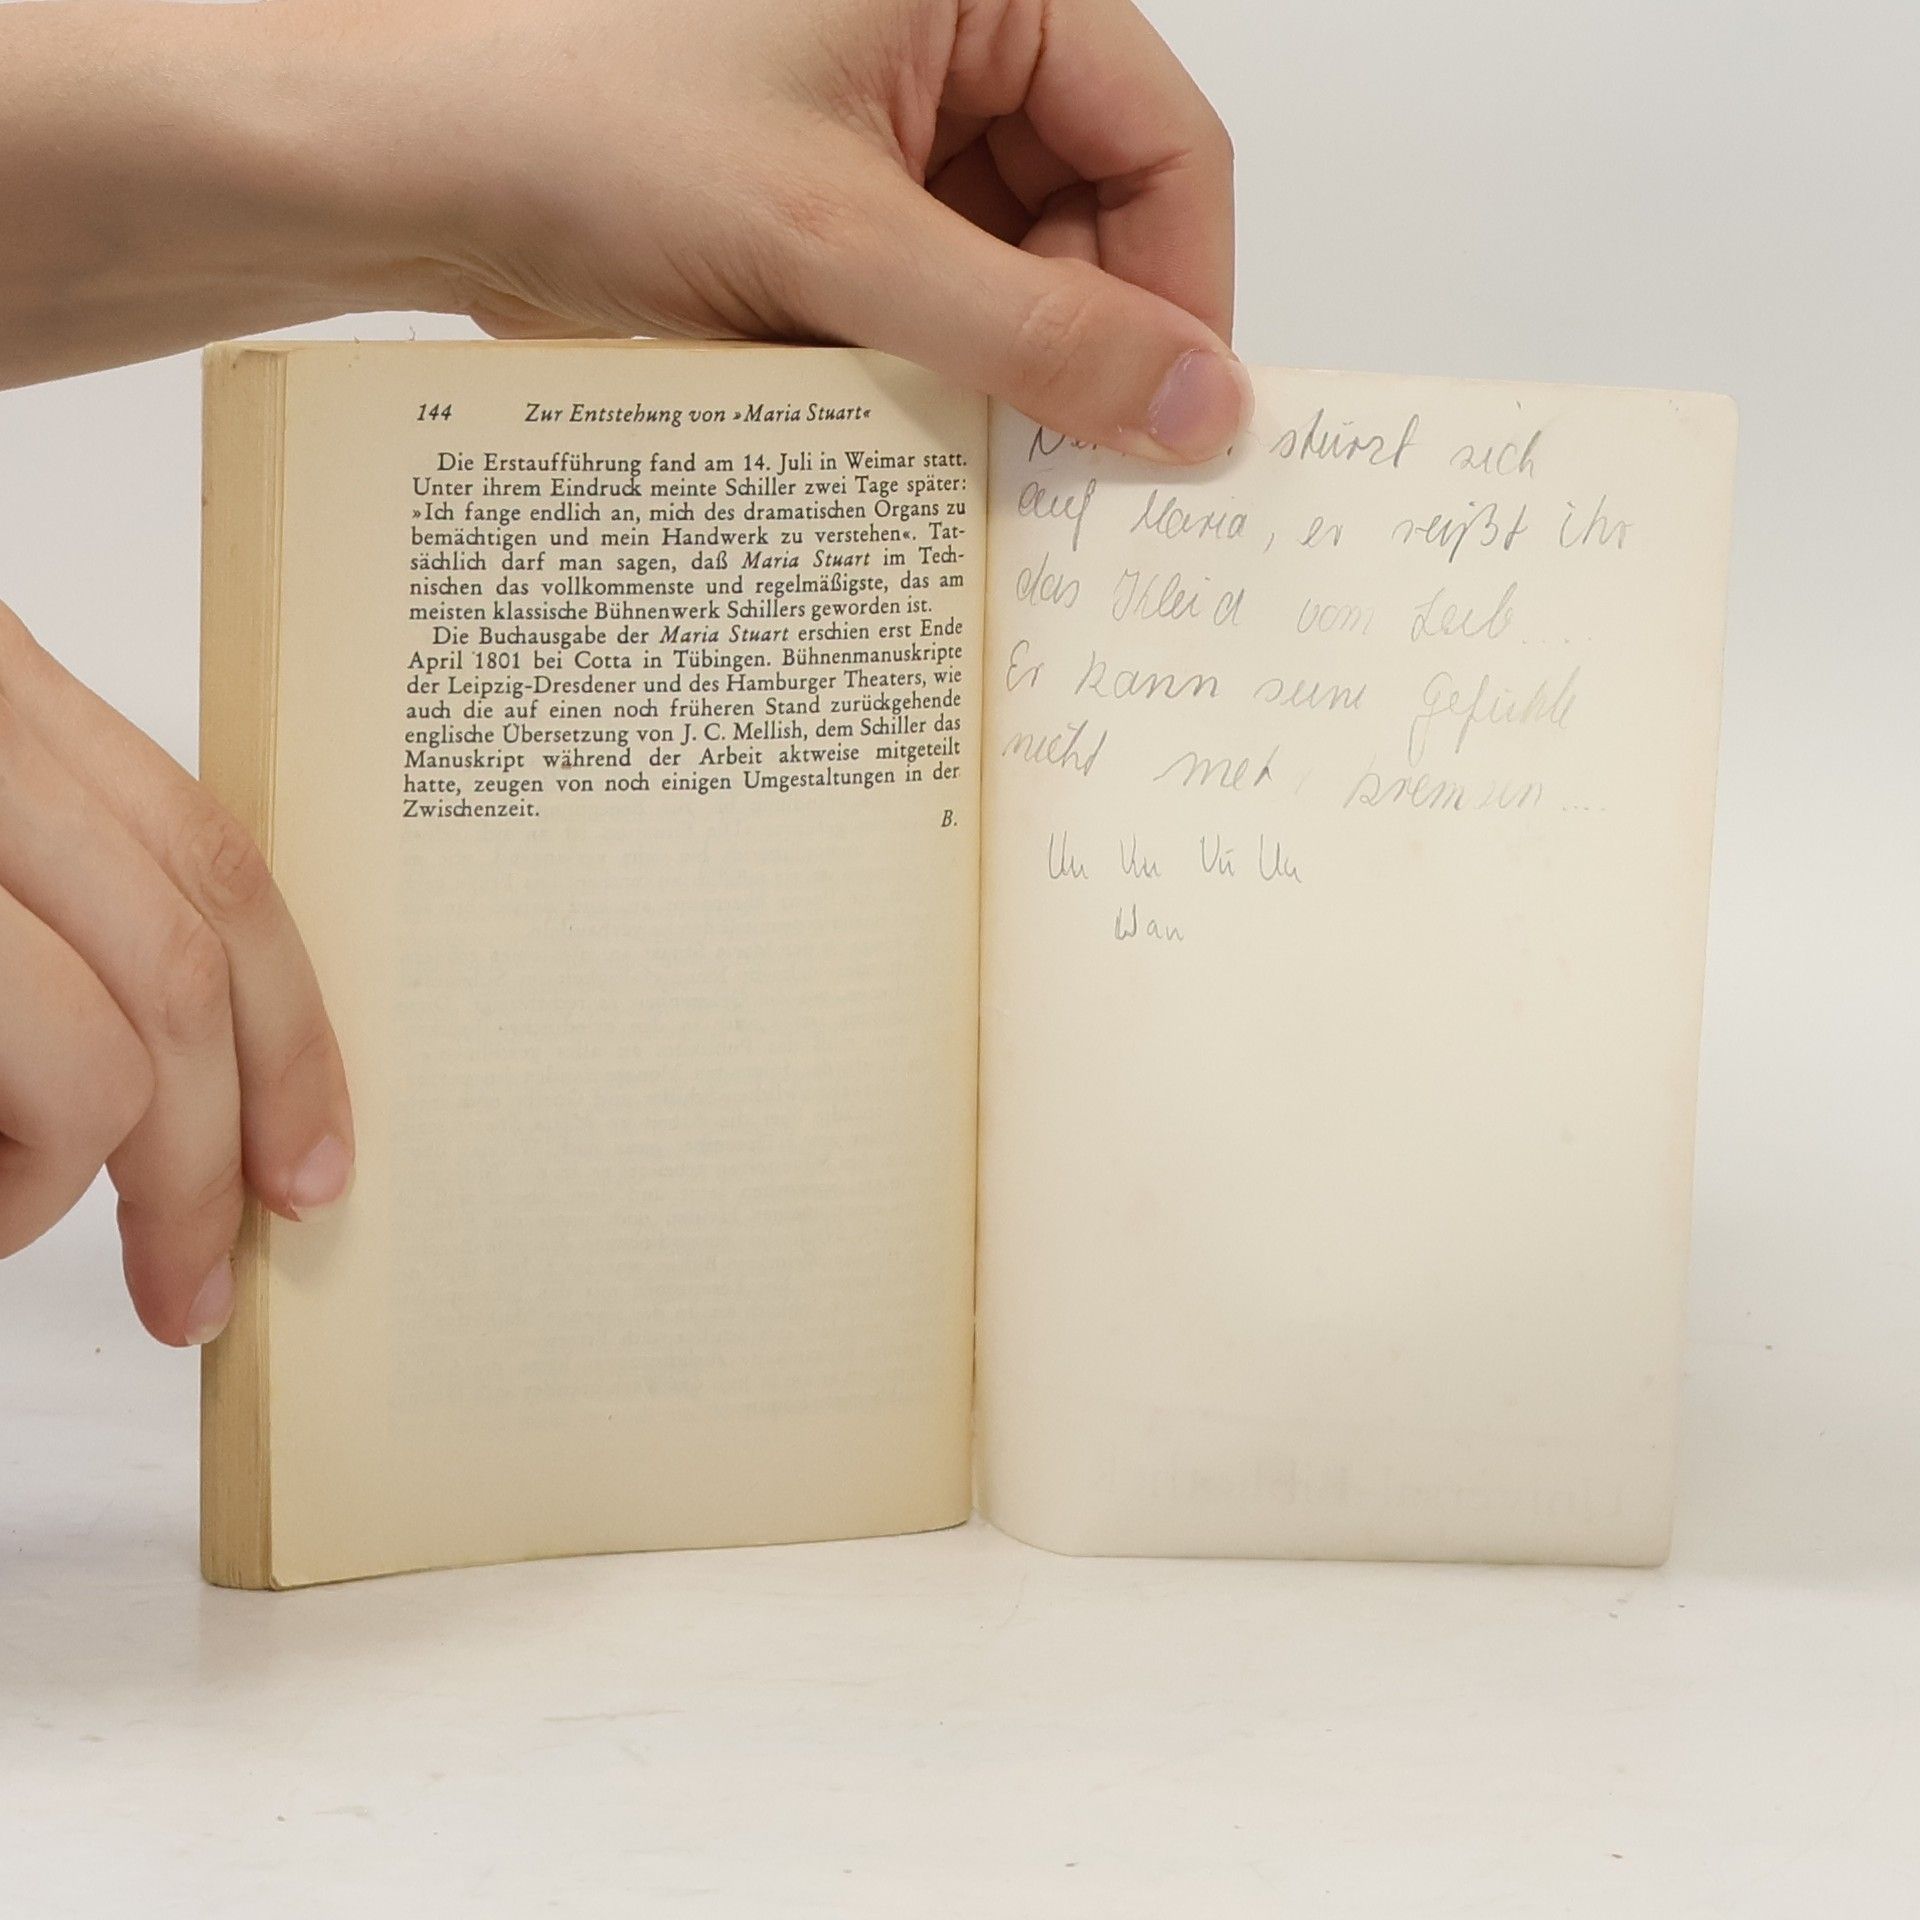 144 Zur Entstehung von »Maria Stuart«
Die Erstaufführung fand am 14. Juli in Weimar statt.
Unter ihrem Eindruck meinte Schiller zwei Tage später:
»Ich fange endlich an, mich des dramatischen Organs zu
bemächtigen und mein Handwerk zu verstehen«. Tat-
sächlich darf man sagen, daß Maria Stuart im Tech-
nischen das vollkommenste und regelmäßigste, das am
meisten klassische Bühnenwerk Schillers geworden ist.
Die Buchausgabe der Maria Stuart erschien erst Ende
April 1801 bei Cotta in Tübingen. Bühnenmanuskripte
der Leipzig-Dresdener und des Hamburger Theaters, wie
auch die auf einen noch früheren Stand zurückgehende
englische Übersetzung von J. C. Mellish, dem Schiller das
Manuskript während der Arbeit aktweise mitgeteilt
hatte, zeugen von noch einigen Umgestaltungen in der
Zwischenzeit.
B.
stürzt sich
auf Maria, er reißt ihr
das Kleid vom Leib....
Er kann seine Gefühle
nicht bremsen....